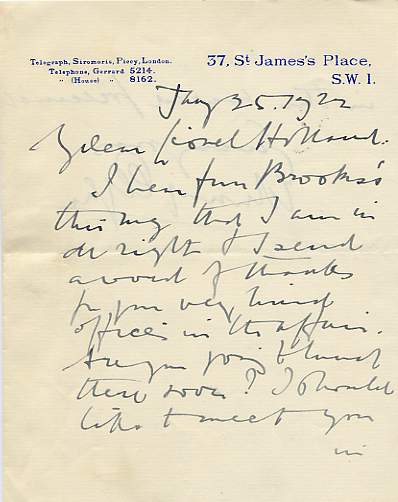 Telegraph, Siromoris, Piccy, London.
Telephone, Gerrard 5214.
" (House) " 8162.
37, St James's Place,
S.W. 1.
25. 1922
My dear Lionel Holland.
I hear from Brooks's
this mg that I am in
all right & I send
a word of thanks
for your very kind
offices in the affair.
Are you going to lunch
there soon? I should
like to meet you
in